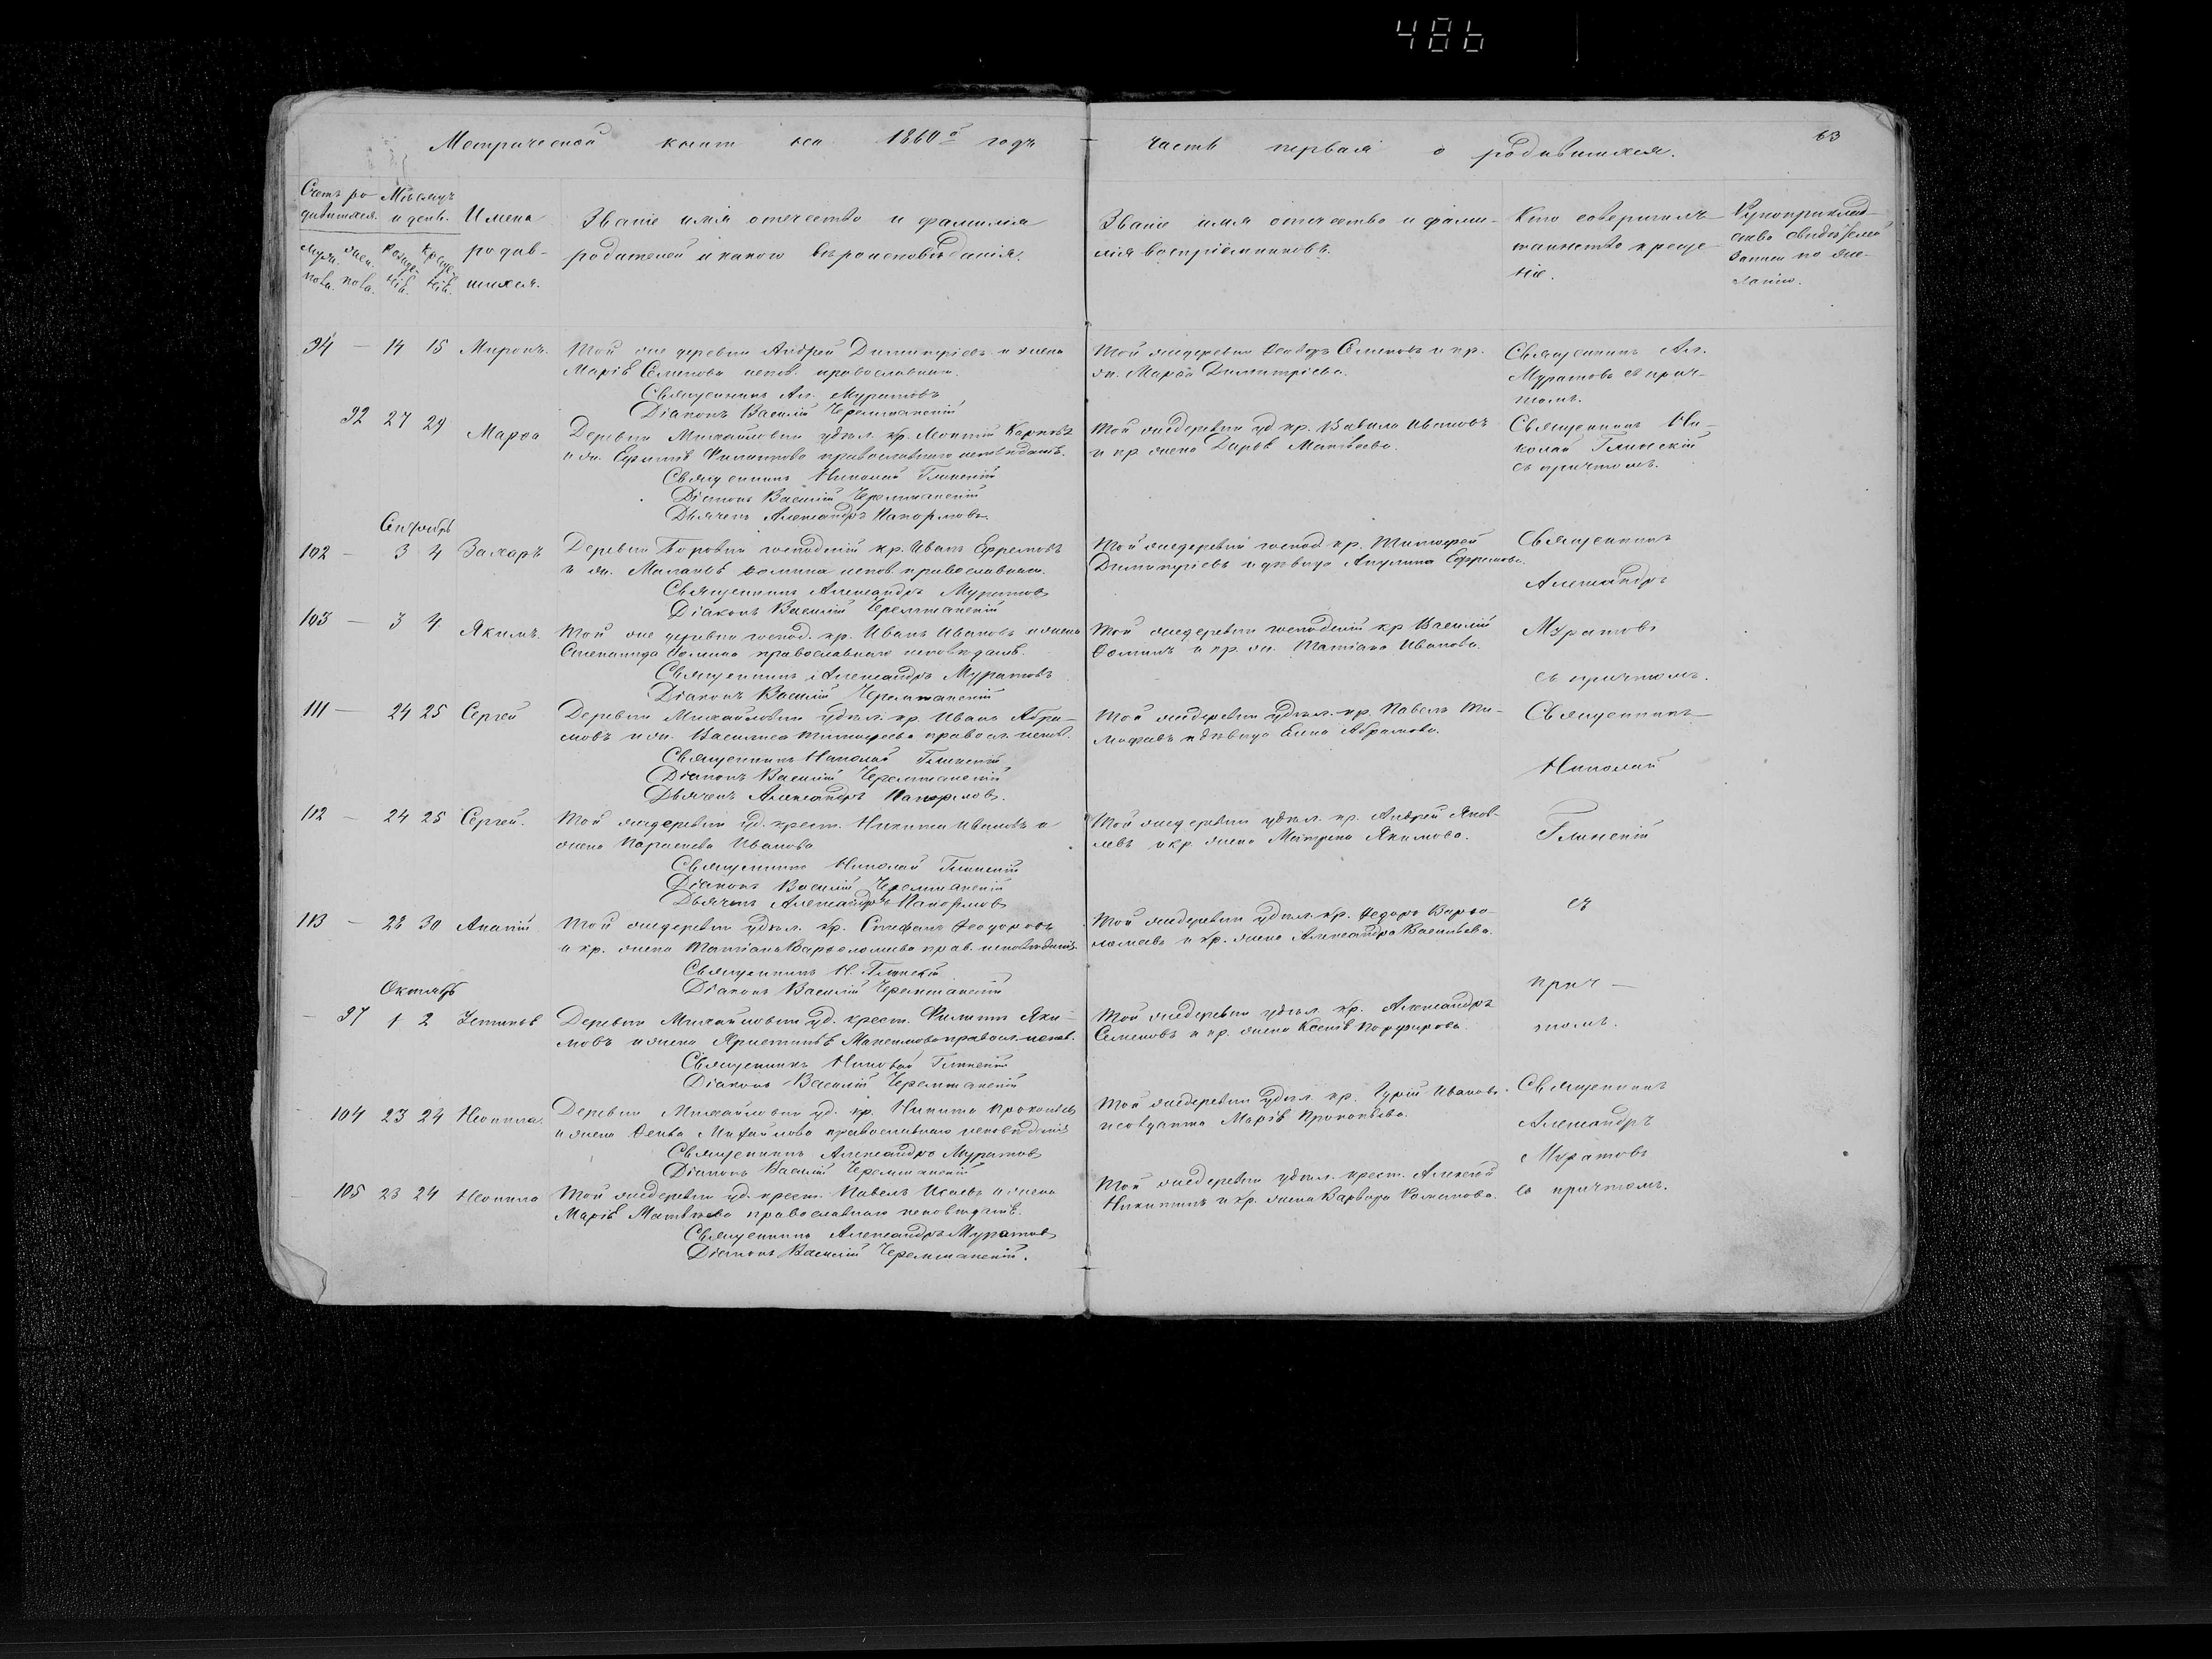 486
Метрической книги на 1860й годъ
часть первая о родившихся.
63
Счетъ родившихся.
Мѣсяцъ и день.
Имена родившихся.
Званіе имя отечество и фамилія
родителей и какого вѣроисповѣданія.
Званіе имя отечество и фами-
лія воспріемниковъ.
Кто совершилъ
таинство креще-
нія.
Рукоприклад-
ство свидѣтелей
записи по же-
ланію.
94 — 14 15 Миронъ.
Той же деревни Андрей Димитріевъ и жена
Марія Семенова испов. православнаго.
Священникъ Ал. Муратовъ
Діаконъ Василій Черемшанскій
Той жедеревни Ѳеодоръ Семеновъ и кр.
жн. Марѳа Димитріева.
Священникъ Ал.
Муратовъ съ прич-
томъ.
92 27 29 Марѳа
Деревни Михайловки удѣл. кр. Леонтій Карповъ
и жн. Евфимія Филиппова православнаго исповѣданія.
Священникъ Николай Глинскій
Діаконъ Василій Черемшанскій
Дьячекъ Александръ Панормовъ.
Той жедеревни уд. кр. Вавила Ивановъ
и кр. жена Дарья Матвѣева.
Священникъ Ни-
колай Глинскій
съ причтомъ.
Сентябрь
102 — 3 4 Захаръ
Деревни Боровки господскій кр. Иванъ Ефремовъ
и жн. Маланья Ѳомина испов. православнаго.
Священникъ Александръ Муратовъ
Діаконъ Василій Черемшанскій
Той жедеревни господ. кр. Тимоѳей
Димитріевъ и дѣвица Акулина Ефремова.
Священникъ
Александръ
103 — 3 4 Якимъ.
Той же деревни господ. кр. Иванъ Ивановъ и жена
Степанида Ѳомина православнаго исповѣданія.
Священникъ Александръ Муратовъ
Діаконъ Василій Черемшанскій
Той жедеревни господскій кр. Василій
Ѳоминъ и кр. жн. Татіана Иванова.
Муратовъ
съ причтомъ.
111 — 24 25 Сергей
Деревни Михайловки удѣл. кр. Иванъ Абра-
мовъ и жн. Василиса Тимоѳеева правосл. испов.
Священникъ Николай Глинскій
Діаконъ Василій Черемшанскій
Дьячекъ Александръ Панормовъ.
Той жедеревни удѣл. кр. Павелъ Ти-
моѳеевъ и дѣвица Елена Абрамова.
Священникъ
Николай
112 — 24 25 Сергей.
Той жедеревни уд. крест. Никита Ивановъ и
жена Параскева Иванова
Священникъ Николай Глинскій
Діаконъ Василій Черемшанскій
Дьячекъ Александръ Панормовъ
Той жедеревни удѣл. кр. Андрей Яков-
левъ и кр. жена Матрена Якимова.
Глинскій
113 — 28 30 Ананій
Той жедеревни удѣл. кр. Стефанъ Ѳеодоровъ
и кр. жена Татіана Варѳоломеева прав. исповѣданія.
Священникъ Н. Глинскій
Діаконъ Василій Черемшанскій
Той жедеревни удѣл. кр. Ѳедоръ Варѳо-
ломеевъ и кр. жена Александра Васильева.
съ
Октябрь
— 97 1 2 Устинья
Деревни Михайловки уд. крест. Филиппъ Яки-
мовъ и жена Христинья Максимова правосл. испов.
Священникъ Николай Глинскій
Діаконъ Василій Черемшанскій
Той жедеревни удѣл. кр. Александръ
Семеновъ и кр. жена Ксенія Порфирова.
прич-
томъ.
104 23 24 Неонила.
Деревни Михайловки уд. кр. Никита Прокопьевъ
и жена Ѳекла Михайлова православнаго исповѣданія
Священникъ Александръ Муратовъ
Діаконъ Василій Черемшанскій
Той жедеревни удѣл. кр. Гурій Ивановъ.
и солдатка Марія Прокопьева.
Священникъ
Александръ
Муратовъ
105 23 24 Неонила
Той жедеревни уд. крест. Павелъ Исаевъ и жена
Марія Матвѣева православнаго исповѣданія.
Священникъ Александръ Муратовъ
Діаконъ Василій Черемшанскій.
Той жедеревни удѣл. крест. Алексей
Никитинъ и кр. жена Варвара Романова.
съ причтомъ.